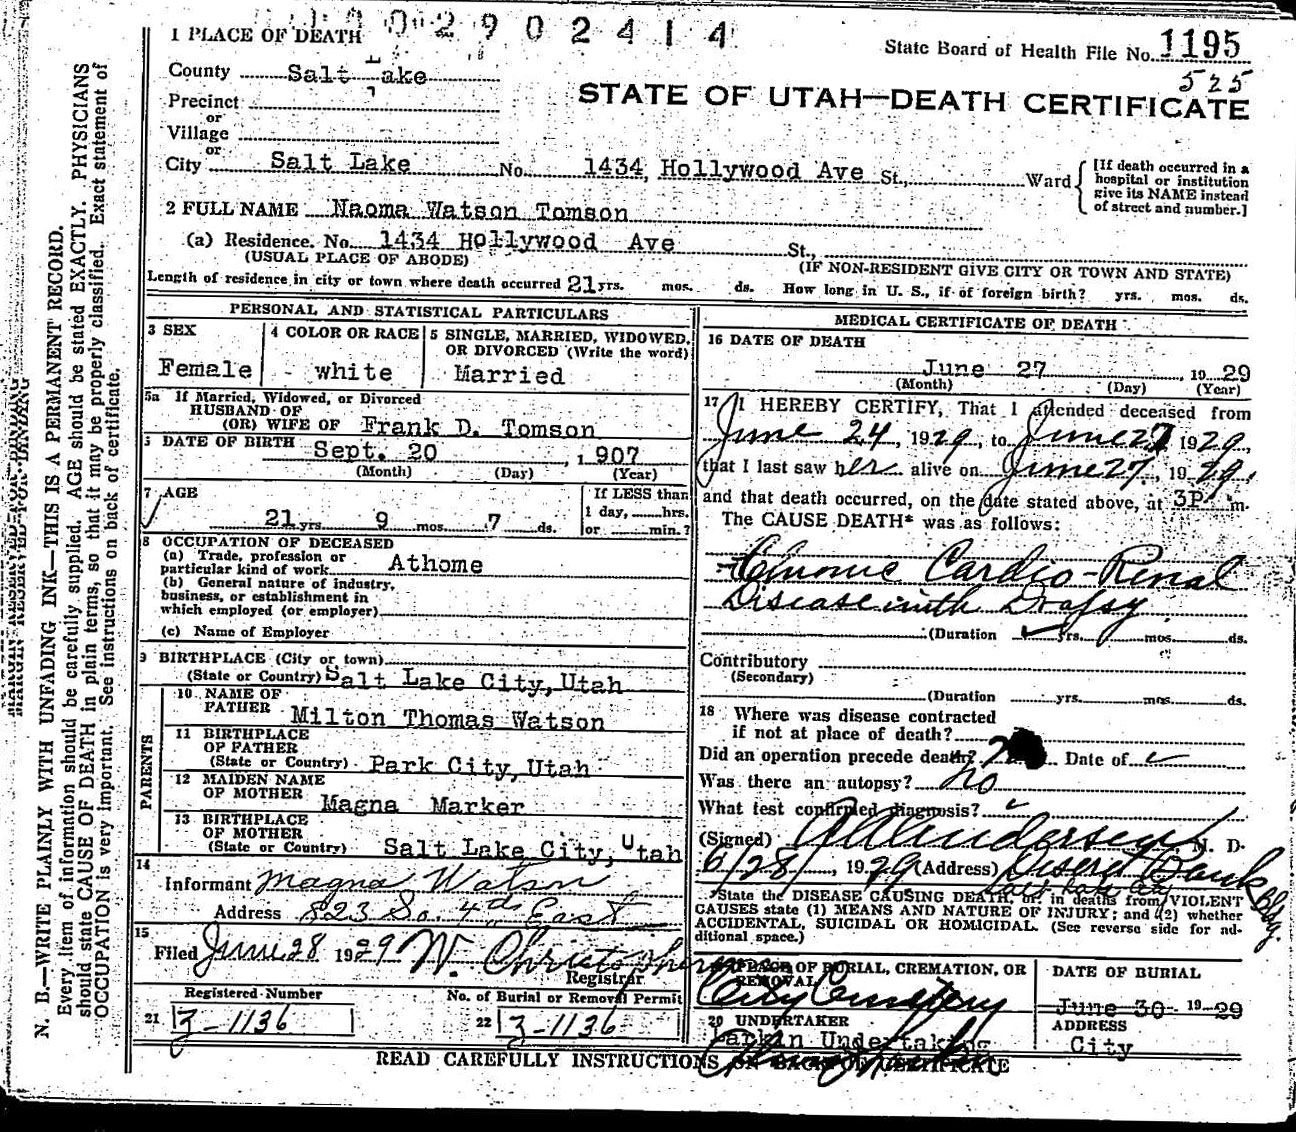 2 9 0 2 4 1 4
1 PLACE OF DEATH
State Board of Health File No. 1195
525
County Salt Lake
STATE OF UTAH—DEATH CERTIFICATE
Precinct
or
Village
or
City Salt Lake No. 1434 Hollywood Ave St., Ward
[If death occurred in a hospital or institution give its NAME instead of street and number.]
2 FULL NAME Naoma Watson Tomson
(a) Residence. No. 1434 Hollywood Ave St.,
(USUAL PLACE OF ABODE) (IF NON-RESIDENT GIVE CITY OR TOWN AND STATE)
Length of residence in city or town where death occurred 21 yrs. mos. ds. How long in U. S., if of foreign birth? yrs. mos. ds.
PERSONAL AND STATISTICAL PARTICULARS
3 SEX
Female
4 COLOR OR RACE
white
5 SINGLE, MARRIED, WIDOWED,
OR DIVORCED (Write the word)
Married
5a If Married, Widowed, or Divorced
HUSBAND OF
(OR) WIFE OF Frank D. Tomson
DATE OF BIRTH Sept. 20, 1907
(Month) (Day) (Year)
7 AGE
21 yrs 9 mos. 7 ds.
If LESS than
1 day, hrs.
or min.?
8 OCCUPATION OF DECEASED
(a) Trade, profession or
particular kind of work Athome
(b) General nature of industry,
business, or establishment in
which employed (or employer)
(c) Name of Employer
9 BIRTHPLACE (City or town)
(State or Country) Salt Lake City, Utah
PARENTS
10 NAME OF
FATHER Milton Thomas Watson
11 BIRTHPLACE
OF FATHER
(State or Country) Park City, Utah
12 MAIDEN NAME
OF MOTHER Magna Marker
13 BIRTHPLACE
OF MOTHER
(State or Country) Salt Lake City, Utah
14
Informant Magna Watson
Address 823 So. 4th East
15
Filed June 28 1929 W. Christopherson
Registrar
Registered Number
21 3-1136
No. of Burial or Removal Permit
22 3-1136
MEDICAL CERTIFICATE OF DEATH
16 DATE OF DEATH
June 27, 1929
(Month) (Day) (Year)
17 I HEREBY CERTIFY, That I attended deceased from
June 24, 1929, to June 27 1929,
that I last saw her alive on June 27, 1929,
and that death occurred, on the date stated above, at 3P m.
The CAUSE DEATH* was as follows:
Chronic Cardio-Renal
Disease with Dropsy
(Duration yrs. mos. ds.
Contributory
(Secondary)
(Duration yrs. mos. ds.
18 Where was disease contracted
if not at place of death?
Did an operation precede death? Date of
Was there an autopsy? no
What test confirmed diagnosis?
(Signed) Andersen M. D.
6/28, 1929 (Address) Deseret Bank Bldg.
Salt Lake City
*State the DISEASE CAUSING DEATH, or in deaths from VIOLENT
CAUSES state (1) MEANS AND NATURE OF INJURY; and (2) whether
ACCIDENTAL, SUICIDAL OR HOMICIDAL. (See reverse side for additional space.)
PLACE OF BURIAL, CREMATION, OR
REMOVAL
City Cemetery
DATE OF BURIAL
June 30 1929
20 UNDERTAKER
Larkin Undertaking
ADDRESS
City
READ CAREFULLY INSTRUCTIONS ON BACK OF CERTIFICATE
N. B.—WRITE PLAINLY WITH UNFADING INK—THIS IS A PERMANENT RECORD.
Every item of information should be carefully supplied. AGE should be stated EXACTLY. PHYSICIANS
should state CAUSE OF DEATH in plain terms, so that it may be properly classified. Exact statement of
OCCUPATION is very important. See instructions on back of certificate.
MARGIN RESERVED FOR BINDING